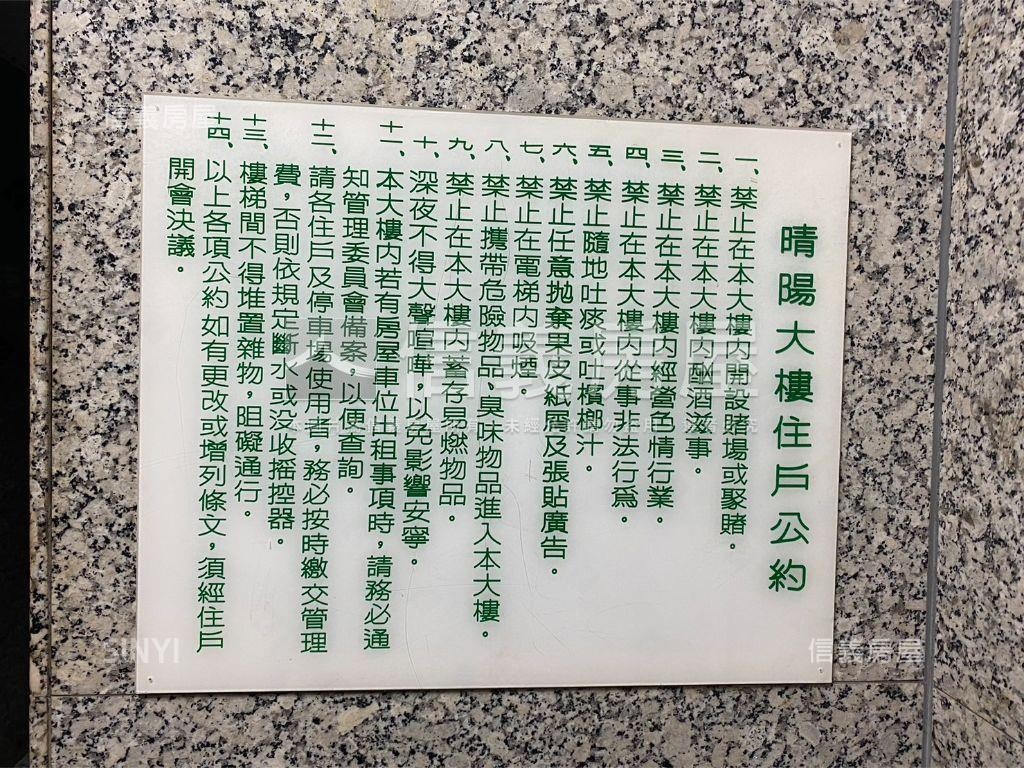 晴陽大樓住戶公約
一、禁止在本大樓內開設賭場或聚賭。
二、禁止在本大樓內酗酒滋事。
三、禁止在本大樓內經營色情行業。
四、禁止在本大樓內從事非法行為。
五、禁止隨地吐痰或吐檳榔汁。
六、禁止任意拋棄果皮紙屑及張貼廣告。
七、禁止在電梯內吸煙。
八、禁止攜帶危險物品、臭味物品進入本大樓。
九、禁止在本大樓內蓄存易燃物品。
十、深夜不得大聲喧嘩，以免影響安寧。
十一、本大樓內若有房屋車位出租事項時，請務必通
知管理委員會備案，以便查詢。
十二、請各住戶及停車場使用者，務必按時繳交管理
費，否則依規定斷水或没收搖控器。
十三、樓梯間不得堆置雜物，阻礙通行。
十四、以上各項公約如有更改或增列條文，須經住戶
開會決議。
信義房屋
SINYI
信義房屋
SINYI
信義房屋